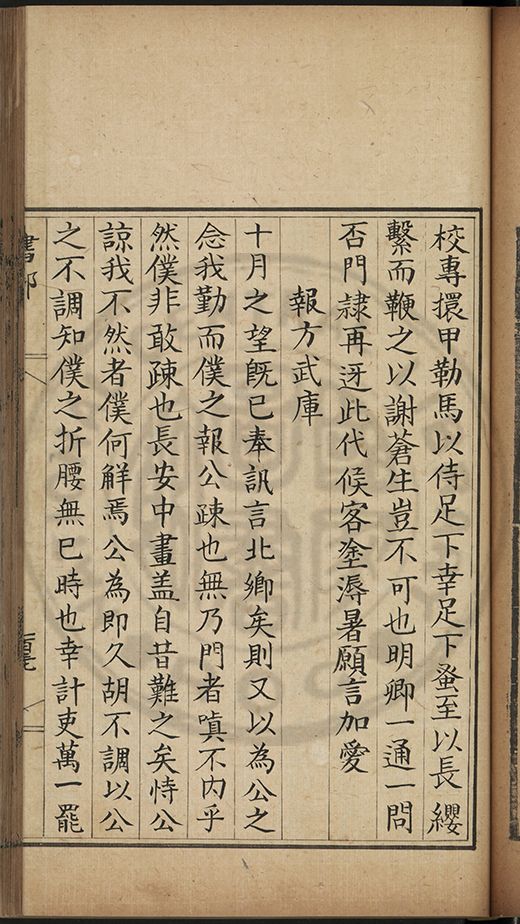 校專擐甲勒馬以待足下幸足下蚤至以長纓
繫而鞭之以謝蒼生豈不可也明卿一通一問
否門隸再迓此代候客塗溽暑願言加愛
報方武庫
十月之望旣已奉訊言北鄉矣則又以為公之
念我勤而僕之報公疎也無乃門者嗔不內乎
然僕非敢疎也長安中畫盖自昔難之矣恃公
諒我不然者僕何觧焉公為即久胡不調以公
之不調知僕之折腰無已時也幸計吏萬一罷
書